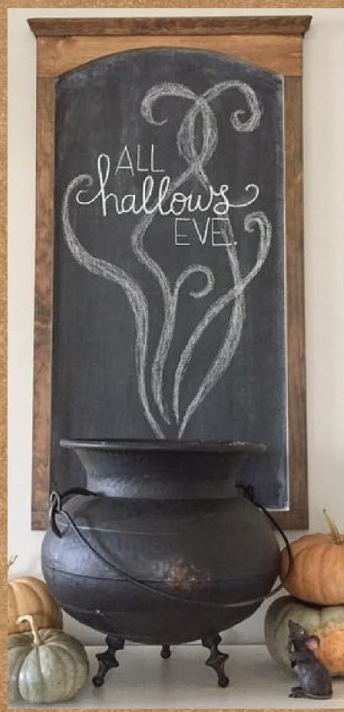 ALL
hallows
EVE.